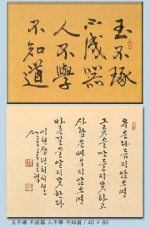 玉不琢
不成器
人不學
不知道
옥은 다듬지 않으면
그릇을 만들지 못하고
사람은 배우지 않으면
바른 길을 알지 못한다
玉不琢 不成器 人不學 不知道 / 40 × 60